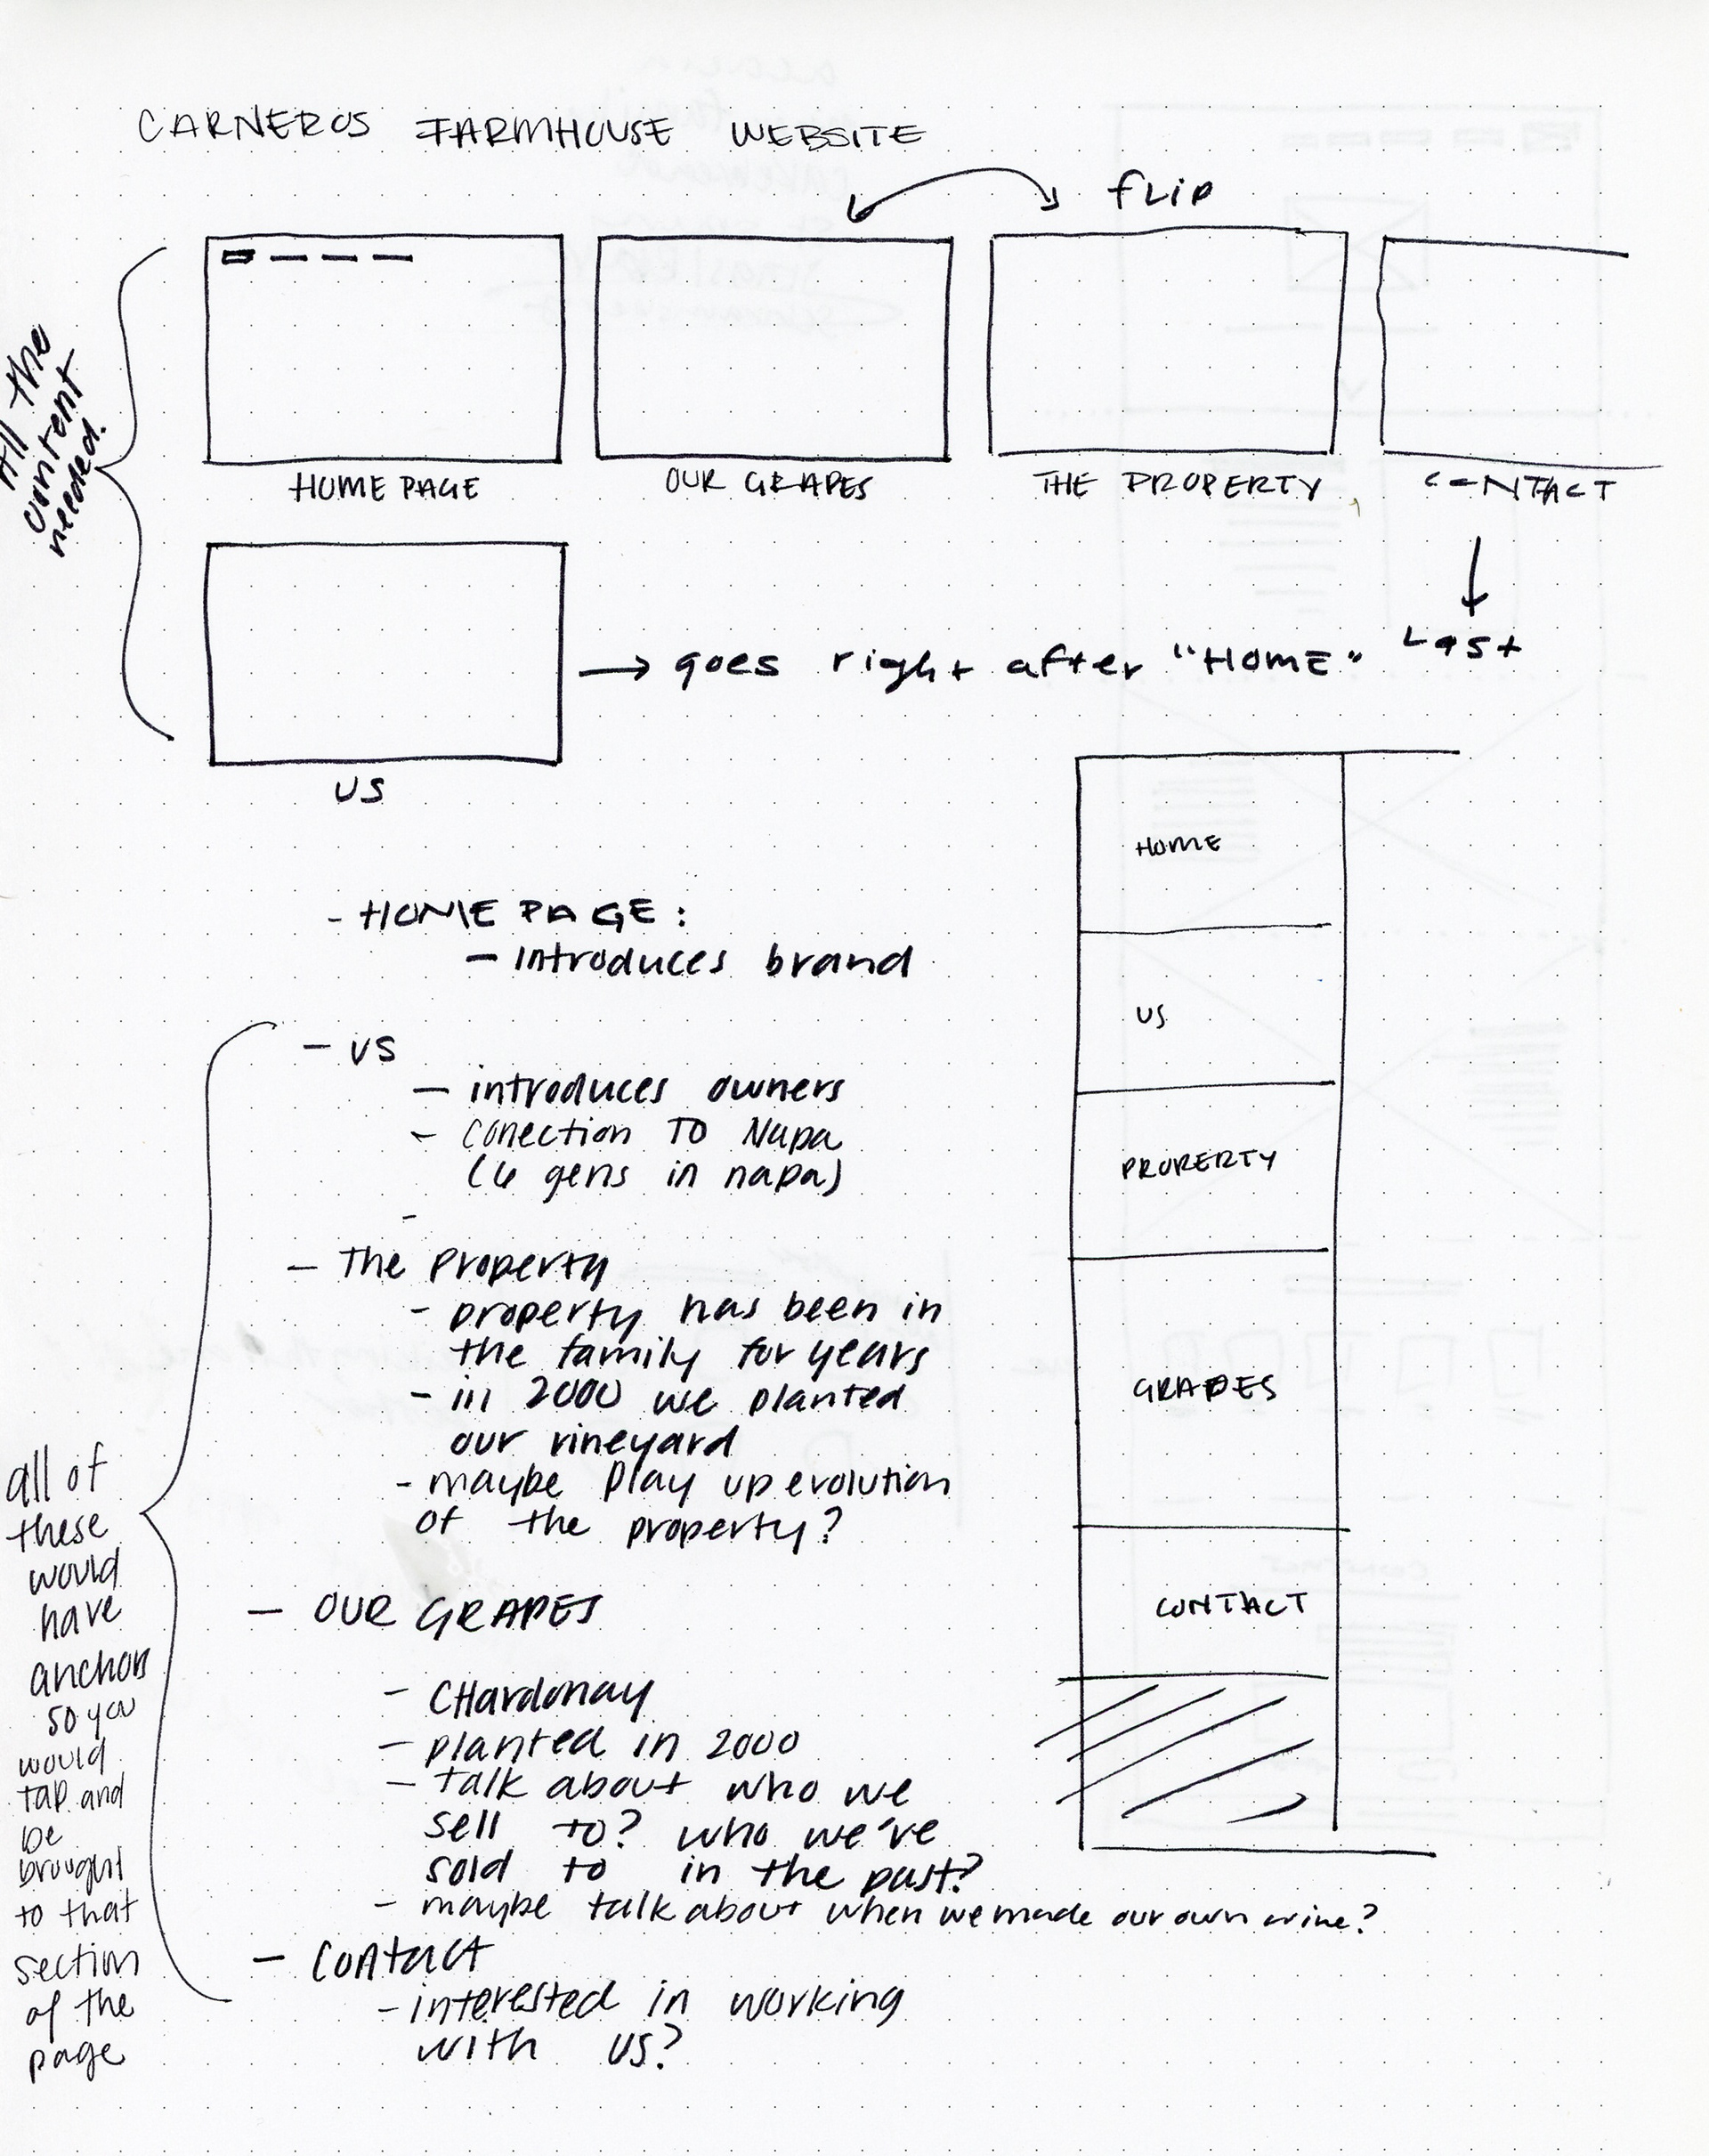 CARNEROS FARMHOUSE WEBSITE
FLIP
All the
content
needed.
HOME PAGE
OUR GRAPES
THE PROPERTY
CONTACT
Last
US
goes right after "HOME"
HOME
US
PROPERTY
GRAPES
CONTACT
- HOME PAGE:
- Introduces brand
- US
- introduces owners
- conection TO Napa
(6 gens in napa)
-
- The Property
- property has been in
the family for years
- in 2000 we planted
our vineyard
- maybe Play up evolution
of the property?
- OUR GRAPES
- CHardonay
- planted in 2000
- talk about who we
sell to? who we've
sold to in the past?
- maybe talk about when we made our own wine?
- Contact
- interested in working
with us?
all of
these
would
have
anchors
so you
would
tap and
be
brought
to that
section
of the
page